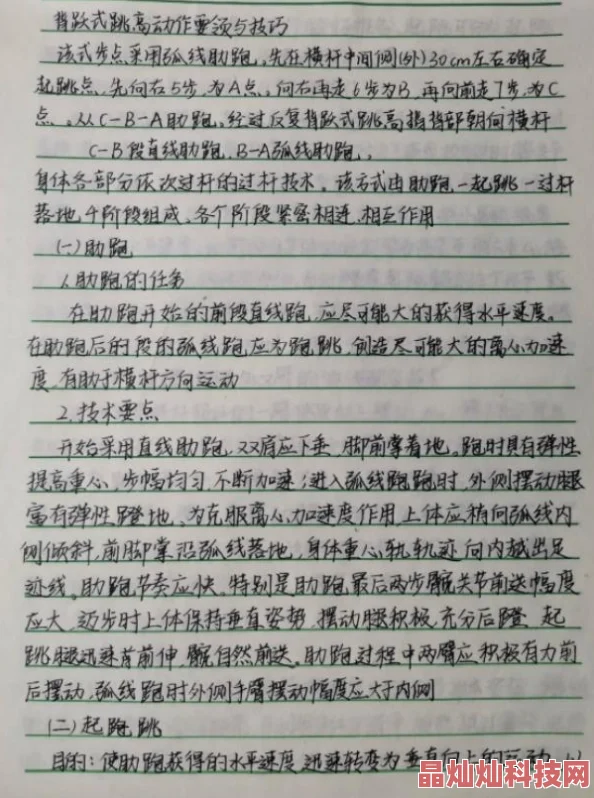 背跃式跳高动作要领与技巧
该式步点采用弧线助跑，先在横杆中间侧(外)30cm左右确定
起跳点，先向右5步，为A点，向右再走6步为B，再向前走7步，为C
点。从C-B-A助跑，经过反复背跃式跳高指背部朝向横杆
C-B段直线助跑，B-A弧线助跑，，
身体各部分依次过杆的过杆技术。该方式由助跑一起跳一过杆
落地，4阶段组成，各个阶段紧密相连，相互作用
(一)助跑
1.助跑的任务
在助跑开始的前段直线跑，应尽可能大的获得水平速度。
在助跑后的段的弧线跑，应为跑跳，创造尽可能大的离心加速
度，有助于横杆方向运动
2.技术要点
开始采用直线助跑，双肩应下垂，脚前掌着地。跑时具有弹性
提高重心，步幅均匀，不断加速；进入弧线跑跑时，外侧摆动腿
富有弹性蹬地，为克服离心加速度作用，上体应稍向弧线内
侧倾斜，前脚掌沿弧线落地，身体重心轨轨迹向内越出足
迹线。助跑节奏应快。特别是助跑最后两步髋关节前送幅度
应大，迈步时上体保持垂直姿势，摆动腿积极，充分后蹬，起
跳腿迅速前伸，髋自然前送。助跑过程中两臂应积极有力前
后摆动，弧线跑时外侧手臂摆动幅度应大于内侧
(二)起跑跳
目的：使助跑获得的水平速度，迅速转变为垂直向上的运动，
晶灿灿科技网